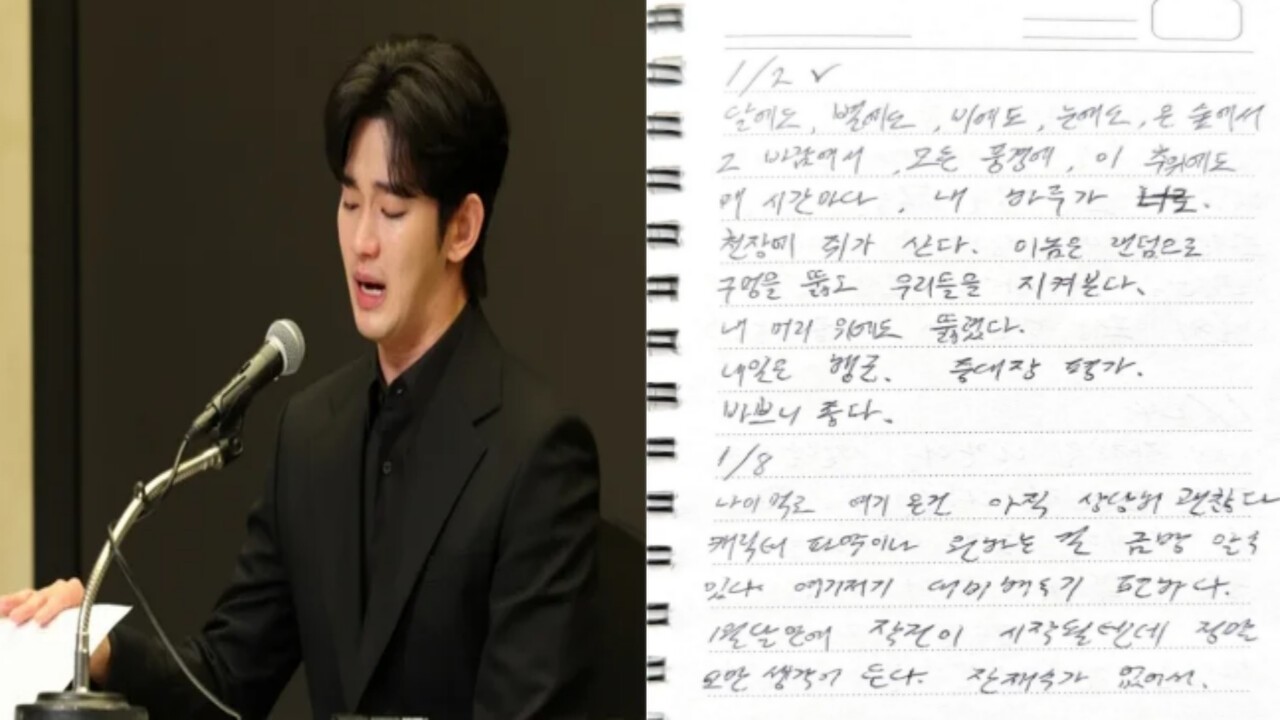 1/2 ✓
달에도, 별에도, 비에도, 눈에도, 온 숲에서
그 바람에서, 모든 풍경에, 이 추위에도
매 시간마다, 내 하루가
천장에 쥐가 산다. 이놈은 랜덤으로
구멍을 뚫고 우리들을 지켜본다.
내 머리 위에도 뚫렸다.
내일은 행군. 중대장 평가.
바쁘니 좋다.
1/8
나이 먹고 여기 온건 아직 상당히 괜찮다
캐릭터 파악이나 원하는 걸 금방 알 수
있다 여기저기 편하다.
1월달 안에 작전이 시작될텐데 정말
오만 생각이 든다.
없어서.